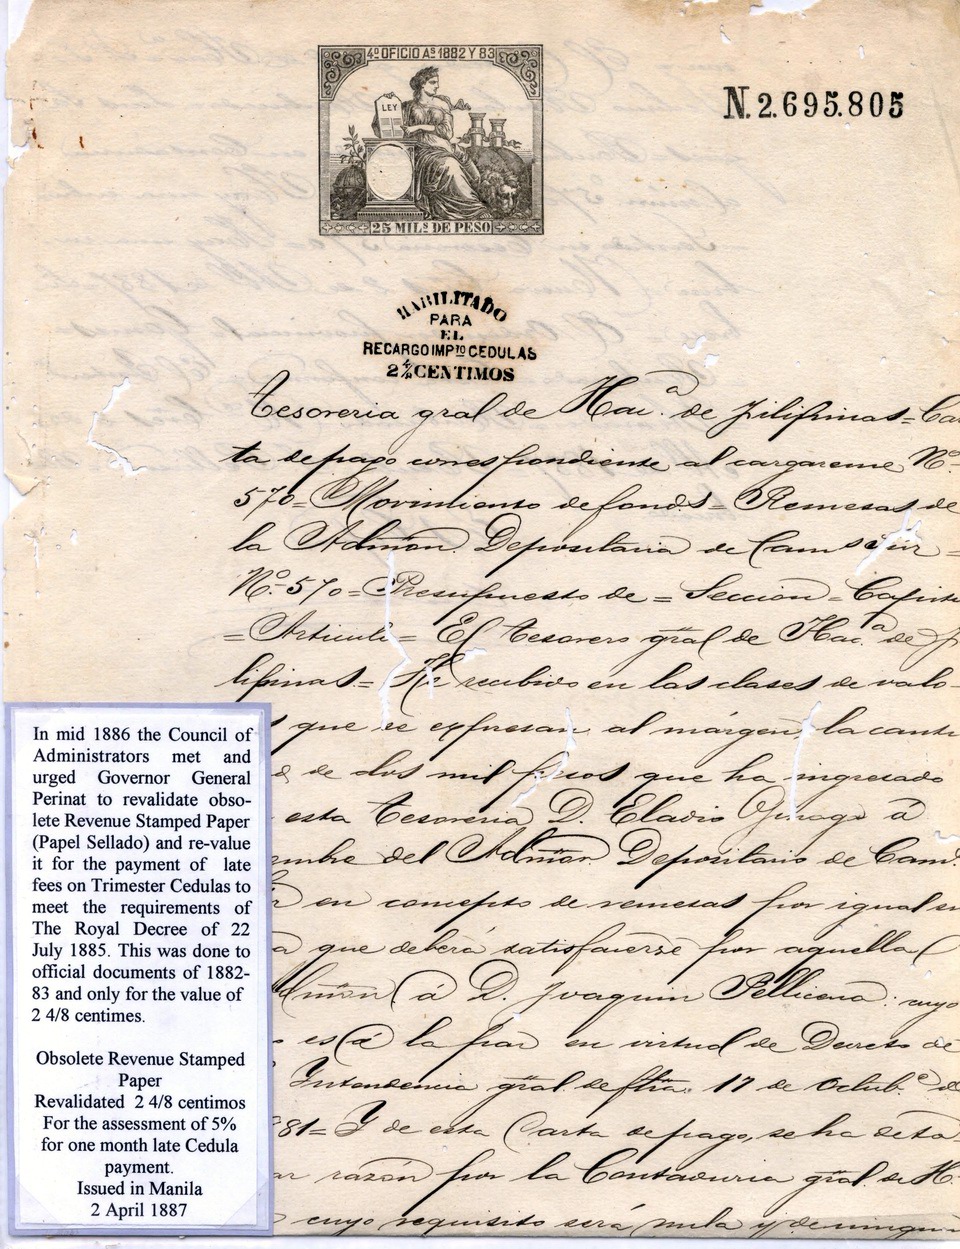 4º OFICIO Aˢ 1882 Y 83
LEY
25 MILˢ DE PESO
N. 2.695.805
HABILITADO
PARA
EL
RECARGO IMPᵗᵒ CEDULAS
2 4/8 CENTIMOS
Tesoreria gral de Hac.ª de Filipinas = Car
ta de pago correspondiente al cargareme Nº
570 = Movimiento de fondos = Remesas de
la Admon. Depositaria de Cam Sur =
Nº 570 = Presupuesto de = Seccion = Capitu
= Articulo = El Tesorero gral de Hac.ª de Fi
lipinas = He recibido en las clases de valo-
que se expresan al márgen, la canti
de dos mil pesos que ha ingresado
esta Tesoreria D. Eladio á
mbre del Admor. Depositario de Cam.
en concepto de remesas por igual
que deberá satisfacerse por aquella
Admon á D. Joaquin Pellicena: cuyo
es á la par en virtud de Decreto de
Intendencia gral de fha 17 de Octub.ᵉ d
81 = Y de esta Carta de pago, se ha de to
ar razón por la Contaduria gral de H.
cuyo requisito será nula y de ningun
In mid 1886 the Council of
Administrators met and
urged Governor General
Perinat to revalidate obso-
lete Revenue Stamped Paper
(Papel Sellado) and re-value
it for the payment of late
fees on Trimester Cedulas to
meet the requirements of
The Royal Decree of 22
July 1885. This was done to
official documents of 1882-
83 and only for the value of
2 4/8 centimes.
Obsolete Revenue Stamped
Paper
Revalidated 2 4/8 centimos
For the assessment of 5%
for one month late Cedula
payment.
Issued in Manila
2 April 1887